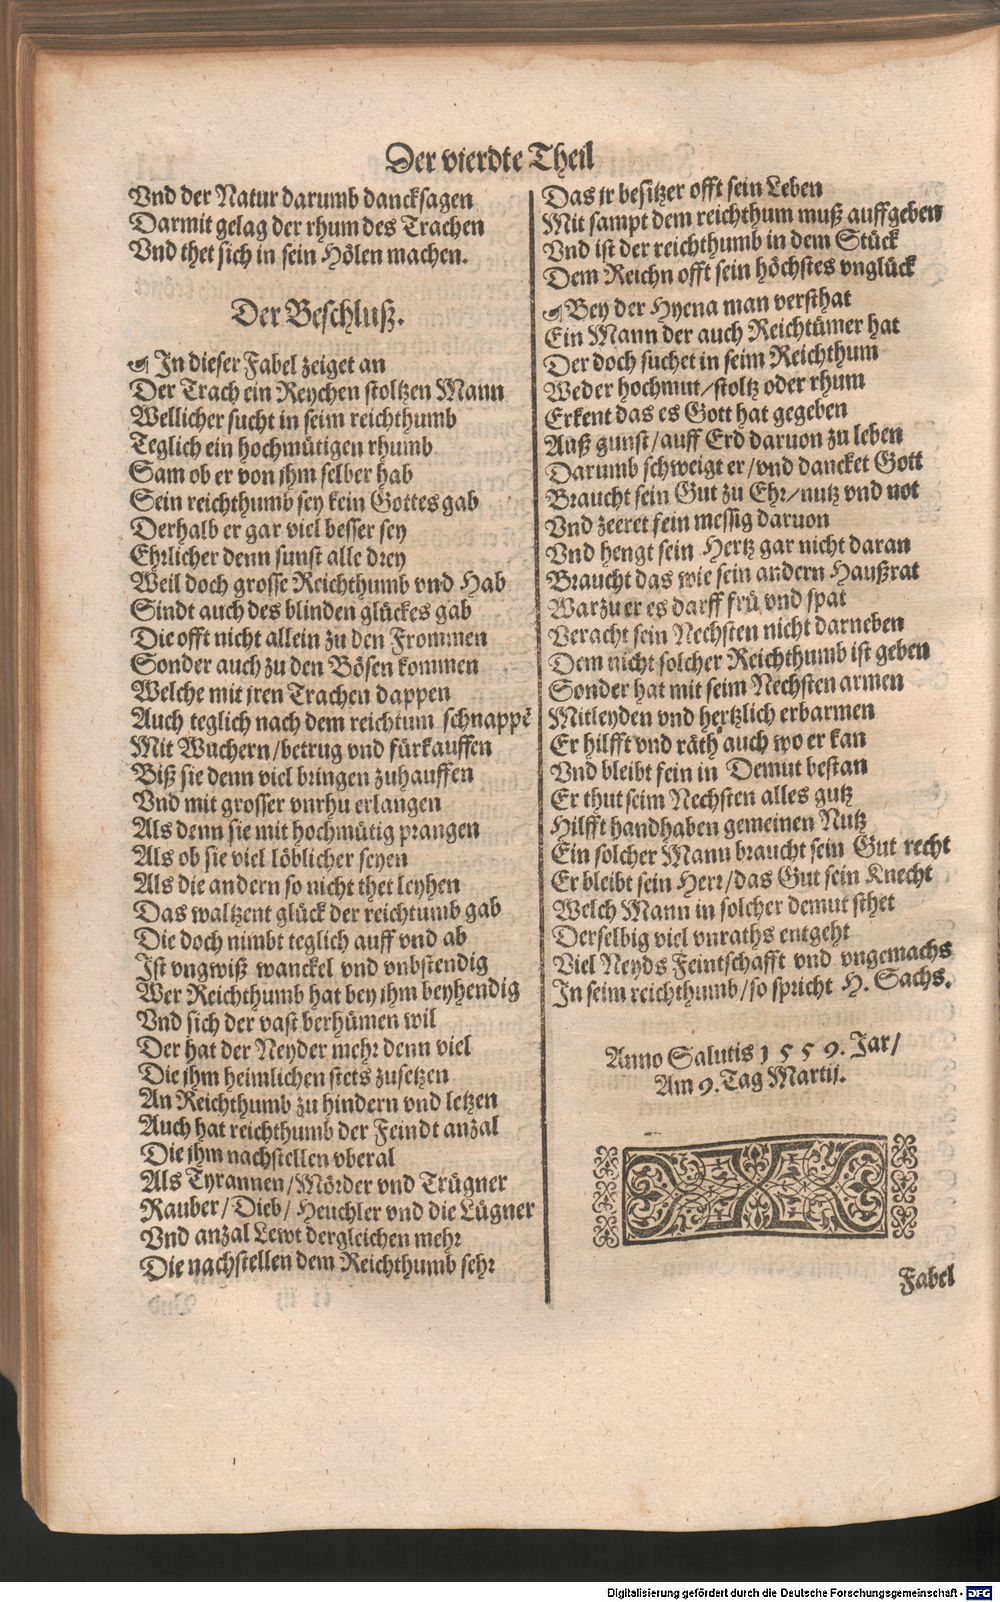 Der vierdte Theil
Vnd der Natur darumb dancksagen
Darmit gelag der rhum des Trachen
Vnd thet sich in sein Hölen machen.
Der Beschluß.
In dieser Fabel zeiget an
Der Trach ein Reychen stoltzen Mann
Wellicher sucht in seim reichthumb
Teglich ein hochmütigen rhumb
Sam ob er von jhm selber hab
Sein reichthumb sey kein Gottes gab
Derhalb er gar viel besser sey
Ehrlicher denn sunst alle drey
Weil doch grosse Reichthumb vnd Hab
Sindt auch des blinden glückes gab
Die offt nicht allein zu den Frommen
Sonder auch zu den Bösen kommen
Welche mit jren Trachen dappen
Auch teglich nach dem reichtum schnappẽ
Mit Wuchern/betrug vnd fürkauffen
Biß sie denn viel bringen zuhauffen
Vnd mit grosser vnrhu erlangen
Als denn sie mit hochmütig prangen
Als ob sie viel löblicher seyen
Als die andern so nicht thet leyhen
Das waltzent glück der reichtumb gab
Die doch nimbt teglich auff vnd ab
Ist vngwiß wanckel vnd vnbstendig
Wer Reichthumb hat bey jhm beyhendig
Vnd sich der vast berhümen wil
Der hat der Neyder mehr denn viel
Die jhm heimlichen stets zusetzen
An Reichthumb zu hindern vnd letzen
Auch hat reichthumb der Feindt anzal
Die jhm nachstellen vberal
Als Tyrannen/Mörder vnd Trügner
Rauber/Dieb/Heuchler vnd die Lügner
Vnd anzal Lewt dergleichen mehr
Die nachstellen dem Reichthumb sehr
Das jr besitzer offt sein Leben
Mit sampt dem reichthum muß auffgeben
Vnd ist der reichthumb in dem Stück
Dem Reichn offt sein höchstes vnglück
Bey der Hyena man versthat
Ein Mann der auch Reichtümer hat
Der doch suchet in seim Reichthum
Weder hochmut/stoltz oder rhum
Erkent das es Gott hat gegeben
Auß gunst/auff Erd daruon zu leben
Darumb schweigt er/vnd dancket Gott
Braucht sein Gut zu Ehr/nutz vnd not
Vnd zeeret fein messig daruon
Vnd hengt sein Hertz gar nicht daran
Braucht das wie sein andern Haußrat
Warzu er es darff frü vnd spat
Veracht sein Nechsten nicht darneben
Dem nicht solcher Reichthumb ist geben
Sonder hat mit seim Nechsten armen
Mitleyden vnd hertzlich erbarmen
Er hilfft vnd räth auch wo er kan
Vnd bleibt fein in Demut bestan
Er thut seim Nechsten alles gutz
Hilfft handhaben gemeinen Nutz
Ein solcher Mann braucht sein Gut recht
Er bleibt sein Herr/das Gut sein Knecht
Welch Mann in solcher demut sthet
Derselbig viel vnraths entgeht
Viel Neyds Feintschafft vnd vngemachs
In seim reichthumb/so spricht H. Sachs.
Anno Salutis 1559. Jar/
Am 9. Tag Martij.
Fabel
Digitalisierung gefördert durch die Deutsche Forschungsgemeinschaft - DFG